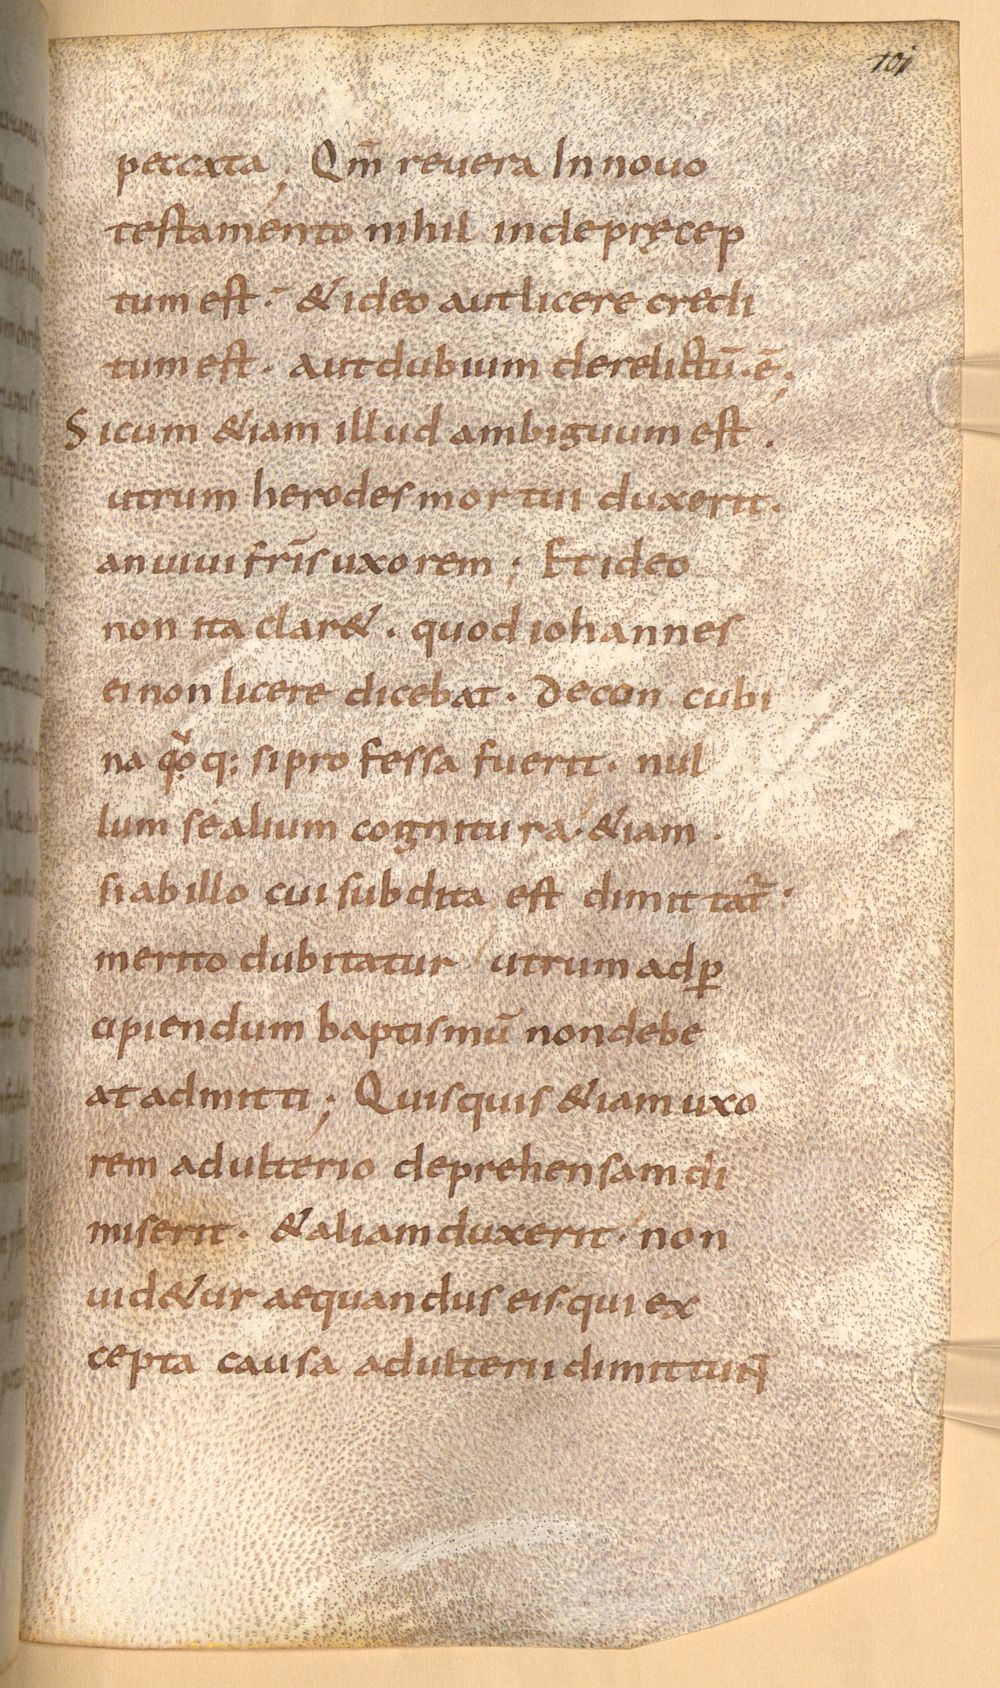 101
peccata; Qm̄ reuera In nouo
testamento nihil inde pręcep
tum est·; & ideo aut licere credi
tum est· aut dubium derelictū·ē·;
Sicum &iam illud ambiguum est·
utrum herodes mortui duxerit·
an uiui fr̄is uxorem; Et ideo
non ita clar&· quod iohannes
ei non licere dicebat· De con cubi
na q̊q: si professa fuerit· nul
lum se alium cognitura· &iam·
si ab illo cui subdita est dimittat̄·
merito dubitatur utrum ad ꝑ
cipiendum baptismū non debe
at admitti; Quisquis &iam uxo
rem adulterio deprehensam di
miserit· & aliam duxerit· non
uid&ur aequandus eis· qui ex
cepta causa adulterii dimittun̄